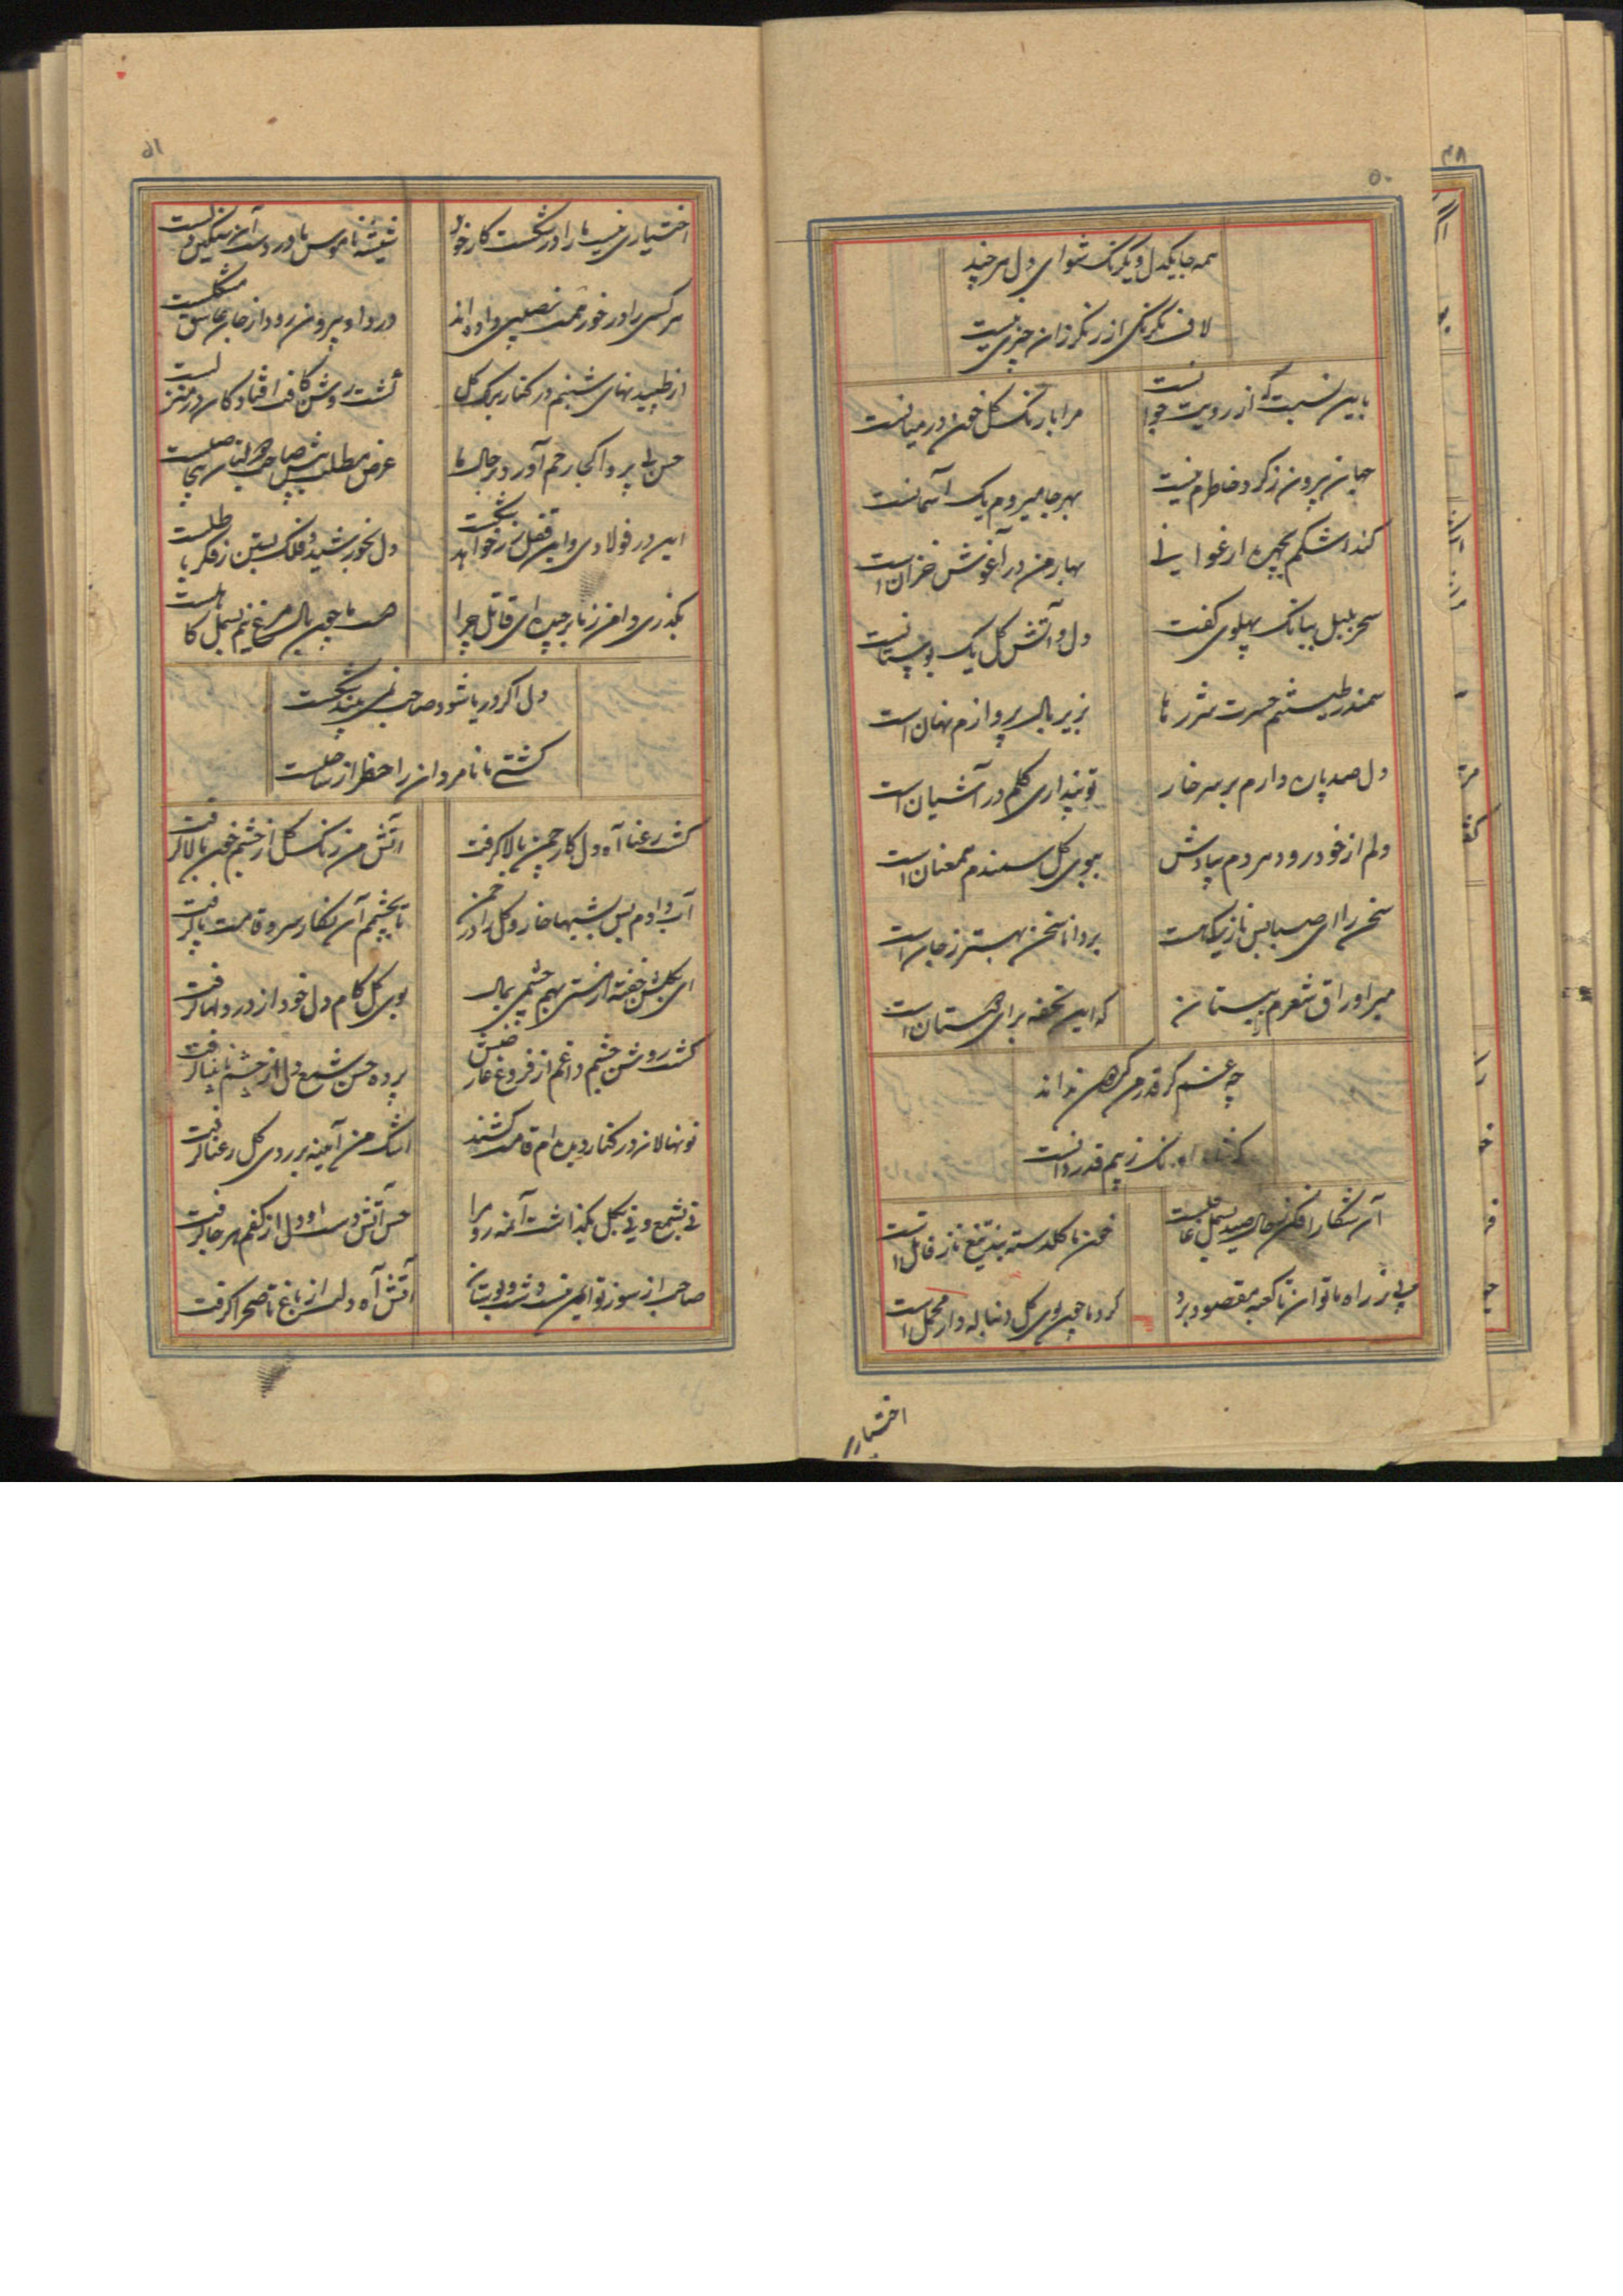 ۵۰
همه جا یکدل و یکرنک شو ای دل هر چند
لاف یکرنکی از رنکرزان چیزی نیست
باین نسبت که از رویت جدا نیست
مرا با رنک کل خون در میانست
جهان بیرون ز کرد خاطرم نیست
بهر جا میروم یک آسمانست
کند اشکم بچهره ارغوانی
بهار من در آغوش خزان است
سحر بلبل ببانک پهلوی کفت
دل و آتش کل یک بوستانست
سمندر طینتم حسرت شررها
بزیر بال پروازم نهان است
دل صد پاره دارم بر سر خار
تو پنداری کلم در آشیان است
دلم از خود رود هر دم بیادش
ببوی کل سمندم همعنان است
سخن را ای صبا بس نازکیهاست
بر دانا سخن بهتر ز جان است
ببر اوراق شعرم را ببستان
که این تحفه برای دوستان است
چه غم کر قدر من کس نداند
اورنک زیبم قدردانست
آن شکار افکن ز حال صید بسمل غافلست
خون ما کلدسته بند تیغ ناز قاتل است
پی ز راه ما توان تا کعبه مقصود برد
کرد ما چون بوی کل دنباله دار محمل است
اختیاری
۵۱
اختیاری نیست ما را در شکست کار خود
شیشه ناموس ما در دست آن سنکین دلست
هر کسی را در خور همت نصیبی داده اند
درد او بیرون رود از جان عاشق مشکلست
از طپیدنهای شبنم در کنار برک کل
کشت روشن کافت افتادکان در منزلست
حسن بی پروا کجا رحم آورد بر حال ما
عرض مطلب پیش صاحب بیحاصلست
این در فولادی و این قفل نخواهد شکست
دل بخورشید و فلک بستن ز فکر باطلست
بکذری دامن ز ما برچیده ای قاتل چرا
همت ما چون بال مرغ نیم بسمل کاهلست
دل اکر دریا شود صاحب نمی بیند شکست
کشتی ما نامرادان را خطر از ساحلست
کشت رعنا آه دل کار چمن بالا کرفت
آتش من رنک کل از چشم خون پالا کرفت
آب دادم بس بشبها خار و کل را در چمن
تا بچشمم آن نکار سرو قامت جا کرفت
ای بکلشن خفته از مستی بهم چشمی بمال
بوی کل کام دل خود از در دلها کرفت
کشت روشن چشم داغم از فروغ عارضش
پرده حسن شمع دل از چشم نابینا کرفت
نونهالان در کنار دیده ام قامت کشند
اشک من آیینه بر روی کل رعنا کرفت
نی بشمع و نی بکل بکذاشت آتش رو مرا
حسن آتش دست او دل از کفم هر جا کرفت
صاحب از سوز تو ایمن نیست شهر و بوستان
آتش آه دلت از باغ تا صحرا کرفت